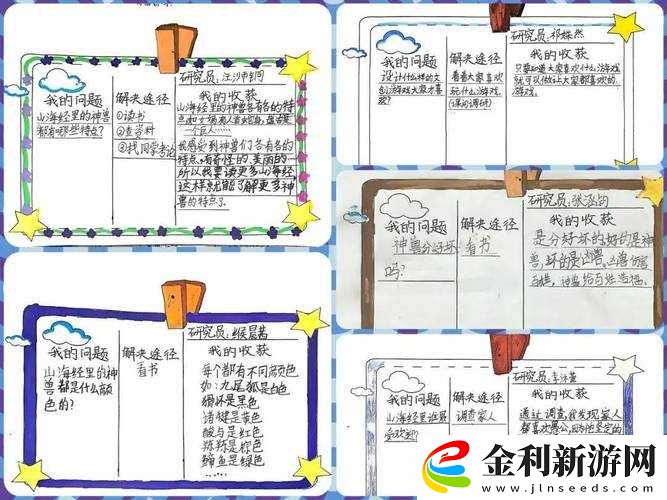 研究员:
我的问题
山海经里的神兽
都有哪些特点?
解决途径
①读书
②查资料
③找同学考论
我的收获
山海经里的神兽各有各的特
我感受到神兽们各有各的
特点,有奇怪的,美丽的
所以我要读更多山海经
这样就能了解更多神
兽的特点了。
研究员:
我的问题
设计什么样的文
创游戏大家才喜
欢?
解决途径
看看大家喜欢
玩什么游戏
(课间调研)
我的收获
只要知道大家喜欢什么游戏
就可以做让大家都喜欢的
游戏。
研究员:
我的问题
神兽分好坏
吗?
解决途径
看书
我的收获
是分好坏的好的是神
兽,坏的是凶兽。凶兽伤害
百姓,神兽给百姓造福。
研究员:
我的问题
山海经里的神
兽都是什么颜
色的?
解决途径
看书
我的收获
每个都有不同颜色
如:九尾狐是白色
猾怀是黑色
诸犍是黄色
酸与是红色
是棕色
是绿色
……
研究员:
我的问题
山海经里谁最
受欢迎?
解决途径
调查家人
我的收获
通过调查,我发现家人
都喜欢愚公,因为他坚定的
金利新游网
www.jlnseds.com